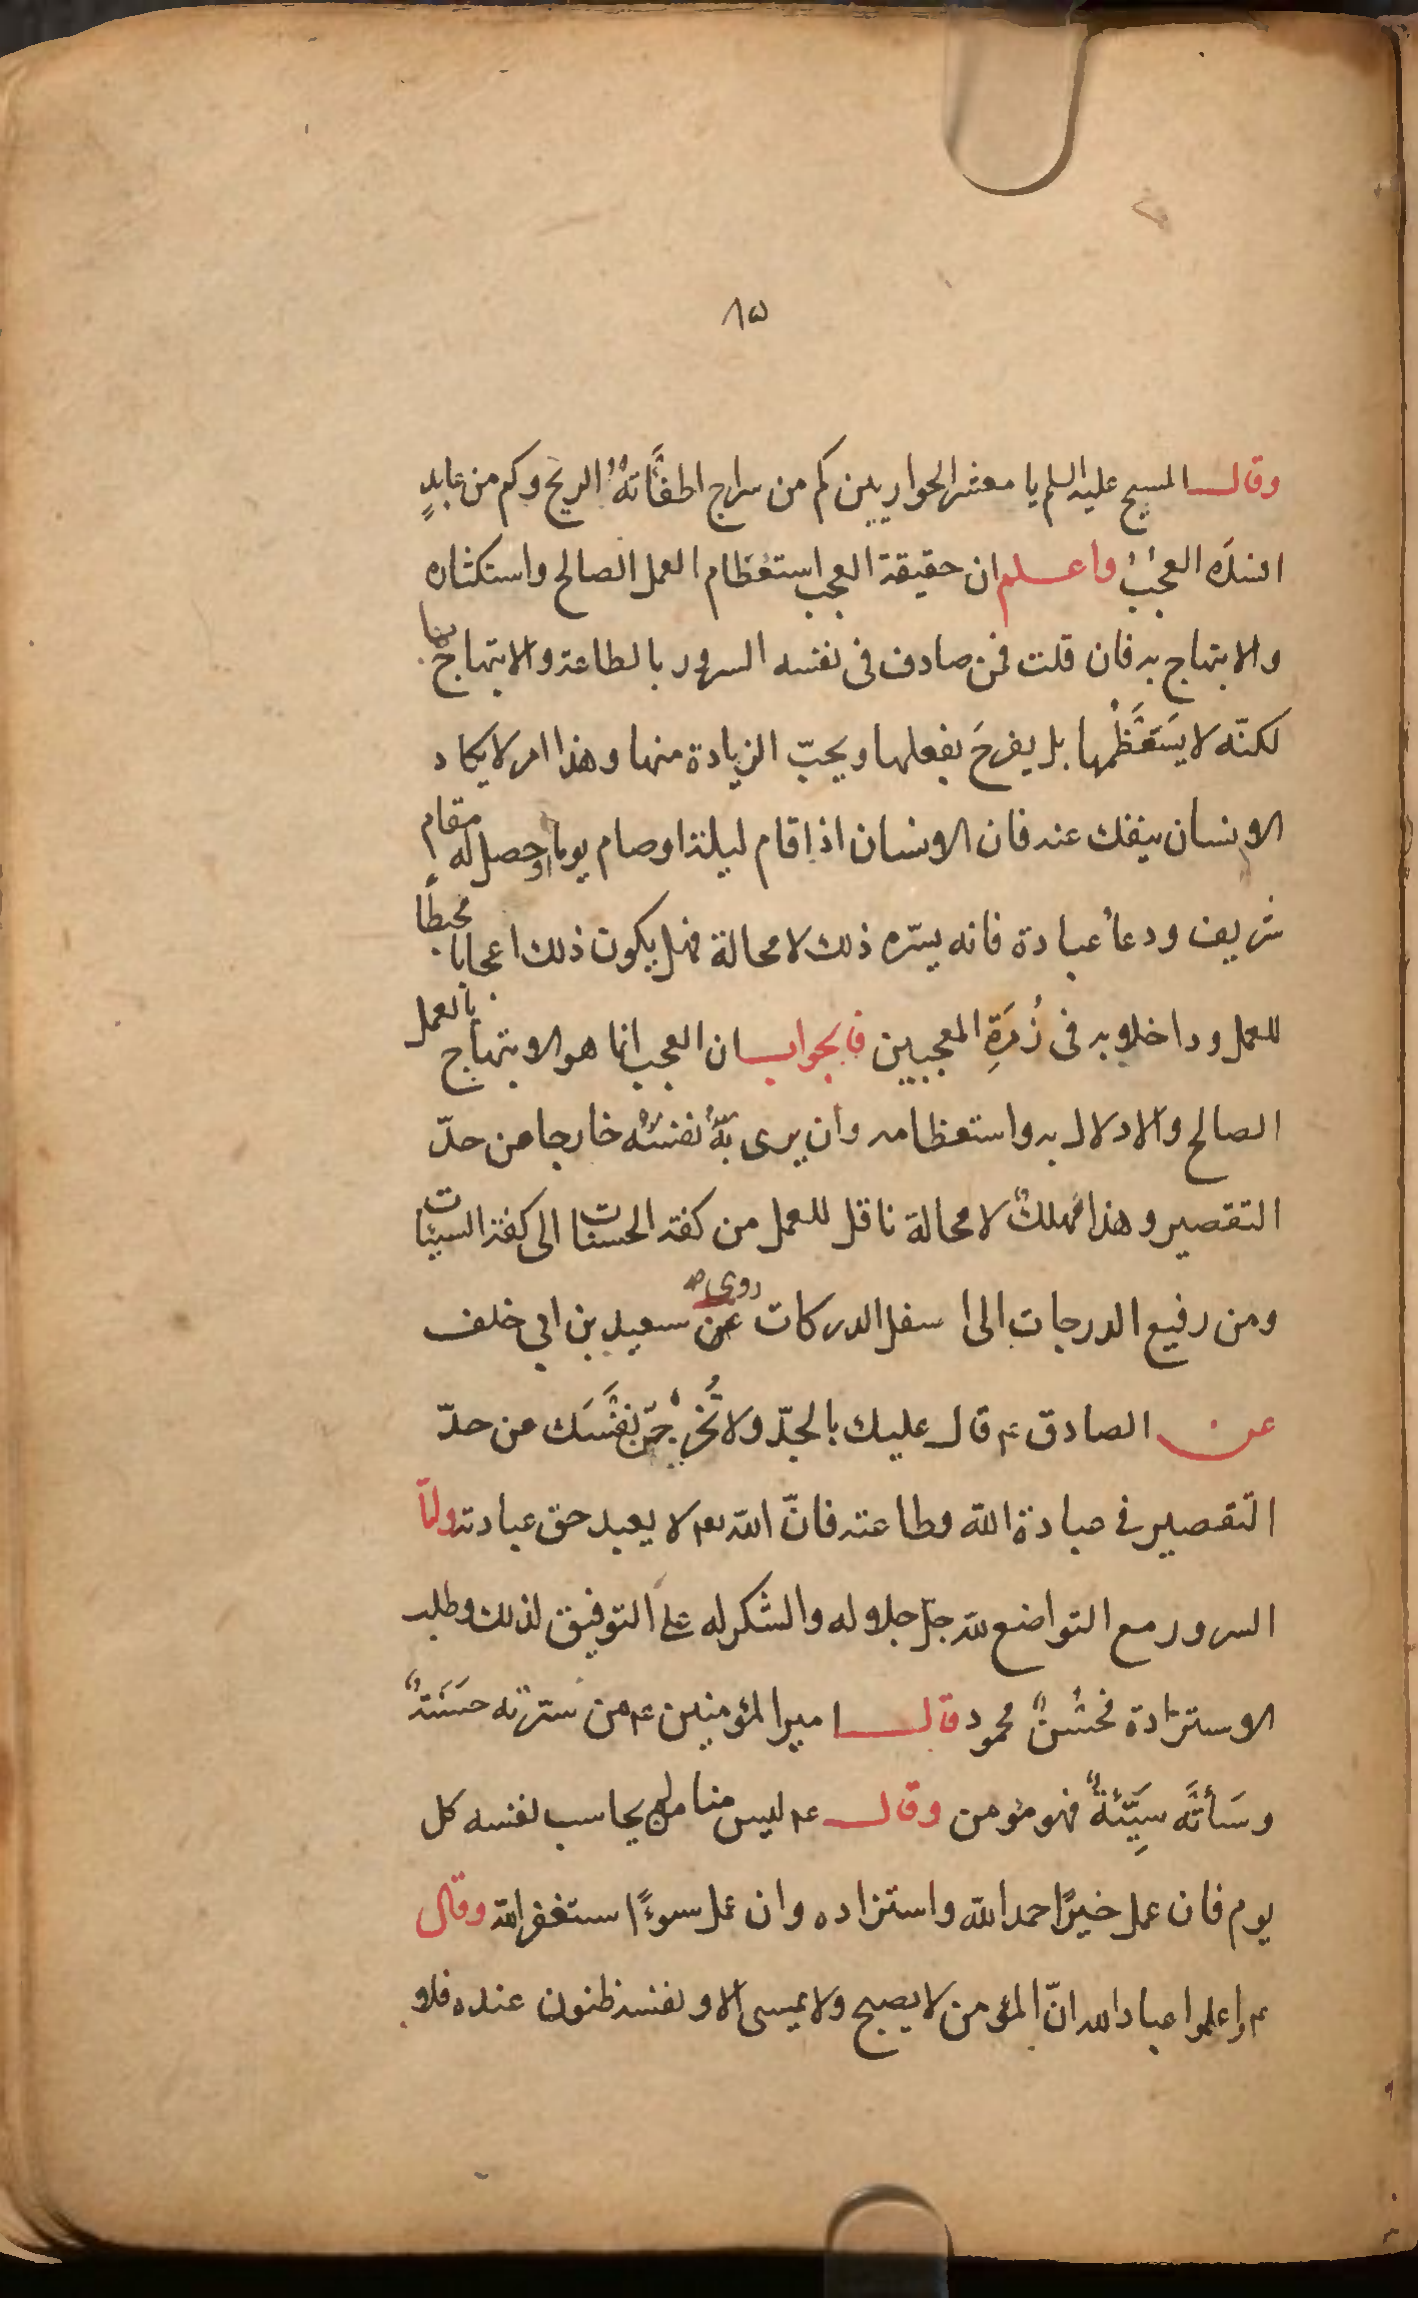 ٨٥
وقال المسيح عليه السلم يا معشر الحواريين كم من سراج اطفأته الريح وكم من عابدٍ
افسده العجب واعلم ان حقيقة العجب استعظام العمل الصالح واستكثاره
والابتهاج به فان قلت فمن صادف فى نفسه السرور بالطاعة والابتهاج بها
لكنّه لا يستعظمها بل يفرحَ بفعلها ويحبّ الزيادة منها وهذا امر لا يكاد
الانسان ينفك عنه فان الانسان اذا قام ليلة او صام يوما او حصل له مقام
شريف ودعاء عبادة فانه يسرّه ذلك لا محالة فهل يكون ذلك اعجابا محبطًا
للعمل وداخلا به فى زُمرَةِ المعجبين فالجواب ان العجب انما هو الابتهاج بالعمل
الصالح والادلال به واستعظامه وان يرى به نفسه خارجا عن حدّ
التقصير وهذا مهلكٌ لا محالة ناقل للعمل من كفة الحسنات الى كفة السيئات
ومن رفيع الدرجات الى اسفل الدركات روى عن سعيد بن ابى خلف
عن الصادق ع قال عليك بالجدّ ولا تُخرِجنّ نفسَك من حدّ
التقصير فى عبادة الله وطاعته فانّ الله تعم لا يعبد حق عبادته ولمّا
السرور مع التواضع لله جلّ جلاله والشكر له على التوفيق لذلك وطلب
الاستزادة فحسُنٌ محمود قال امير المؤمنين ع من سترته حسَنَتهُ
وسَأته سَيِّئةٌ فهو مؤمن وقال ع ليس منا من لم يحاسب نفسه كل
يوم فان عمل خيرًا حمد الله واستزاده وان عمل سوءًا استغفر الله وقال
ع واعلموا عباد الله انّ المؤمن لا يصبح ولا يمسى الا ونفسه ظنون عنده فلا